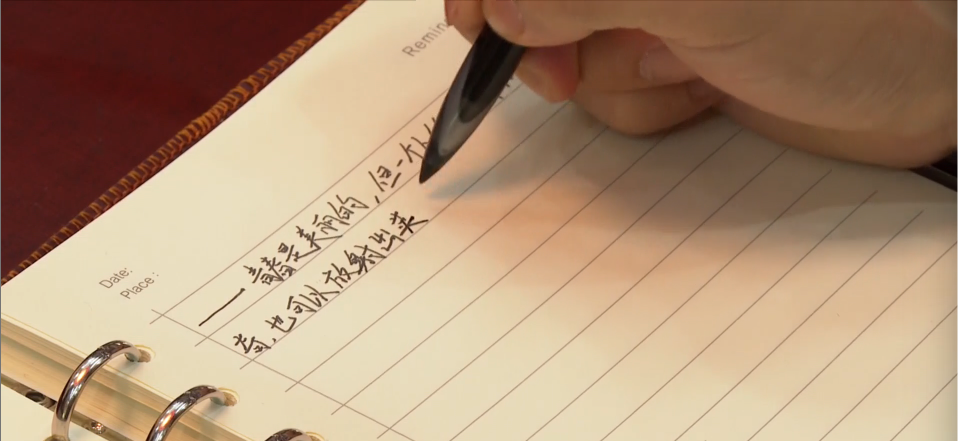 Remin
Date:
Place:
— 青春是美丽的,但一个
奇,也可以放射出英